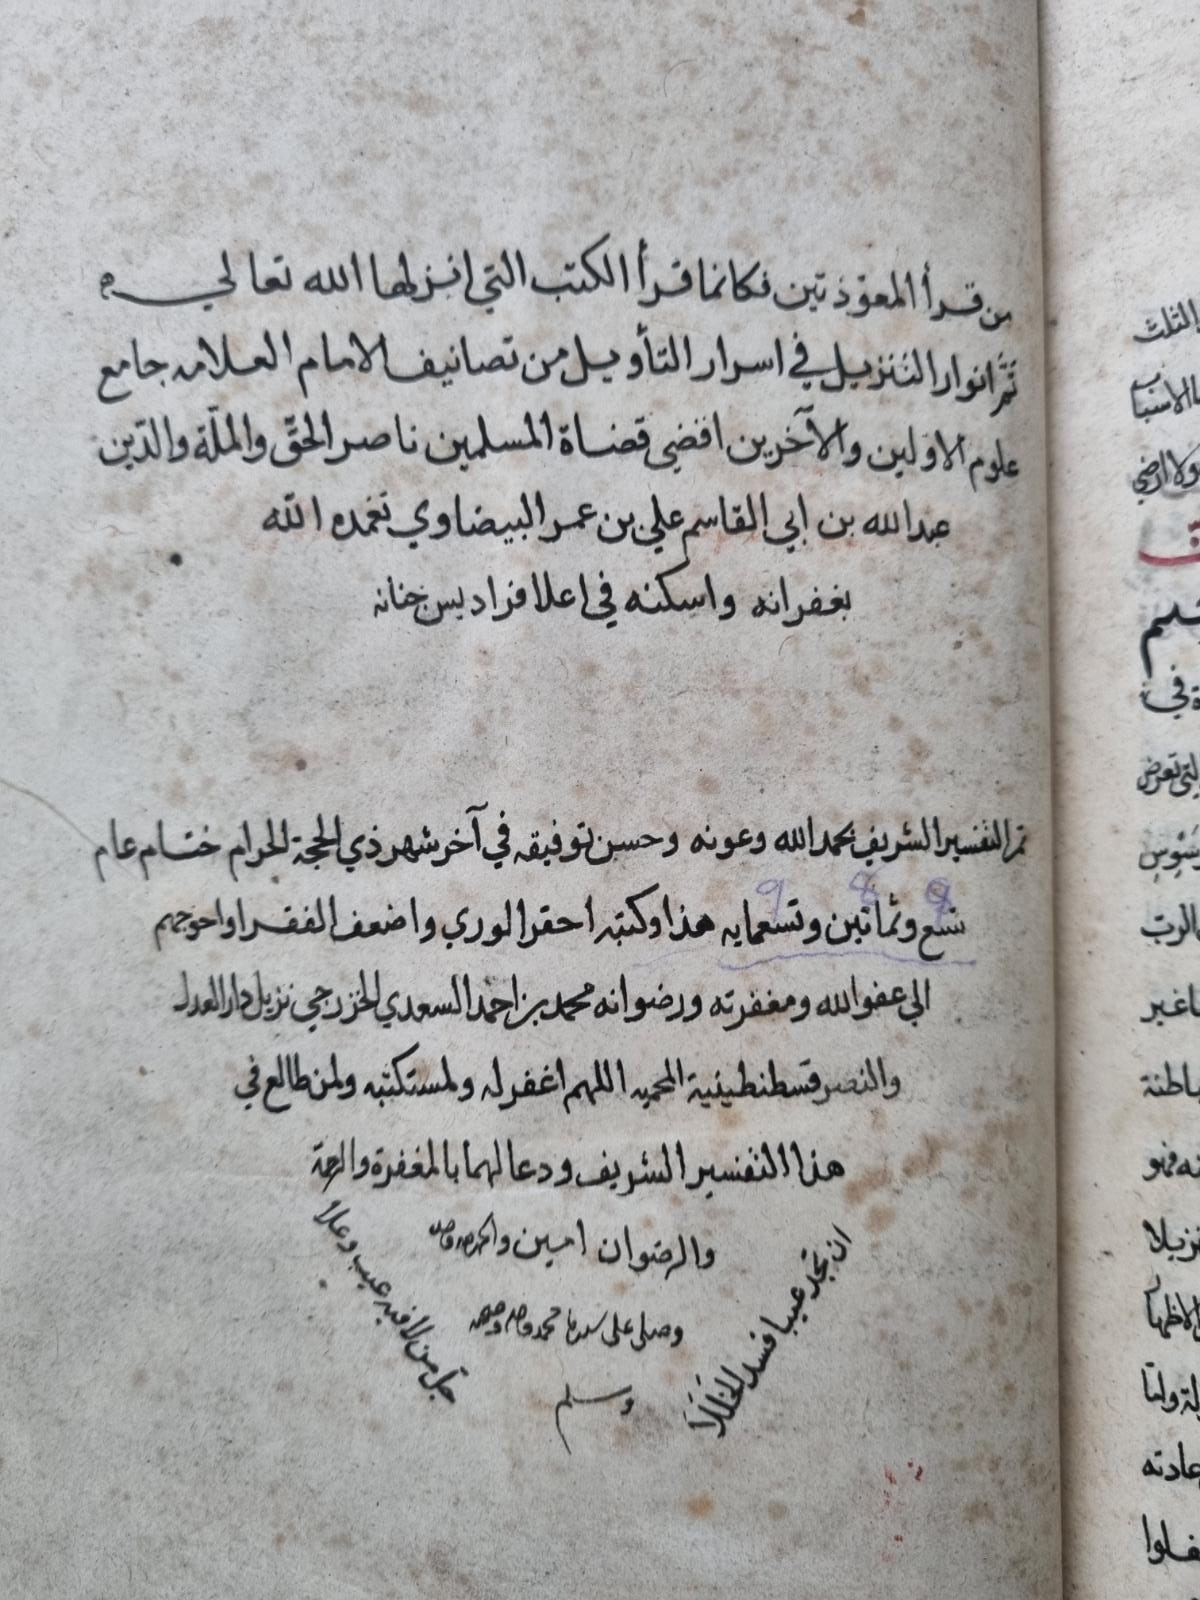 من قرأ المعوّذتين فكانما قرأ الكتب التي انزلها الله تعالي
تَمَّ انوار التنزيل في اسرار التأويل من تصانيف الامام العلامه جامع
علوم الاولين والآخرين اقضي قضاة المسلمين ناصر الحقِّ والملّة والدّين
عبدالله بن ابي القاسم علي بن عمر البيضاوي تغمده الله
بغفرانه واسكنه في اعلا فراديس جنانه
تم التفسير الشريف بحمدالله وعونه وحسن توفيقه في آخر شهر ذي الحجة الحرام ختام عام
9 8 9
تسع وثمانين وتسعمايه هذا وكتبه احقر الوري واضعف الفقرا واحوجهم
الي عفوالله ومغفرته ورضوانه محمد بن احمد السعدي الخزرجي نزيل دار العدل
والنصر قسطنطينية المحميه اللهم اغفرله ولمستكتبه ولمن طالع في
هذا التفسير الشريف ودعا لهما بالمغفرة والرحمة
والرضوان امين والحمدلله وحده
وصلى على سيدنا محمد واله وصحبه
وسلم
ان تجد عيبا فسد الخللا
جلّ من لا فيه عيب وعلا
الثلث
الاسباب
ولا ارضي
في
التي تعرض
الرب
غير
باطنة
نه فهو
نزيلا
الاظهار
واما
عادته
فلوا